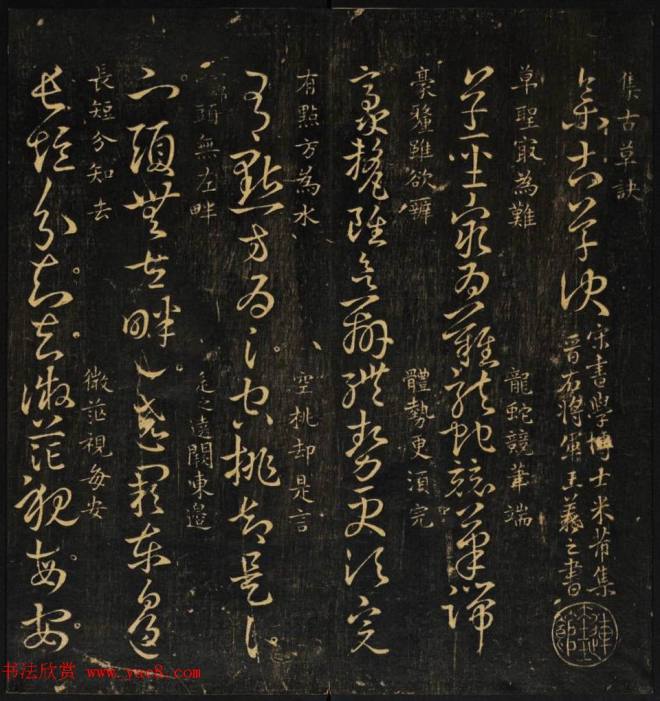 集古草訣
集古草訣
宋書學博士米芾集
晉右將軍王羲之書
草聖㝡為難 龍蛇競筆端
草聖㝡為難龍蛇競筆端
毫釐雖欲辨 體勢更須完
毫釐雖欲辨體勢更須完
有點方為水 空挑却是言
有點方為氵空挑却是言
頭無左畔 遶闕東邊
宀頭無左畔辶遶闕東邊
長短分知去 微茫視每安
長短分知去微茫視每安
书法欣赏 www.yac8.com